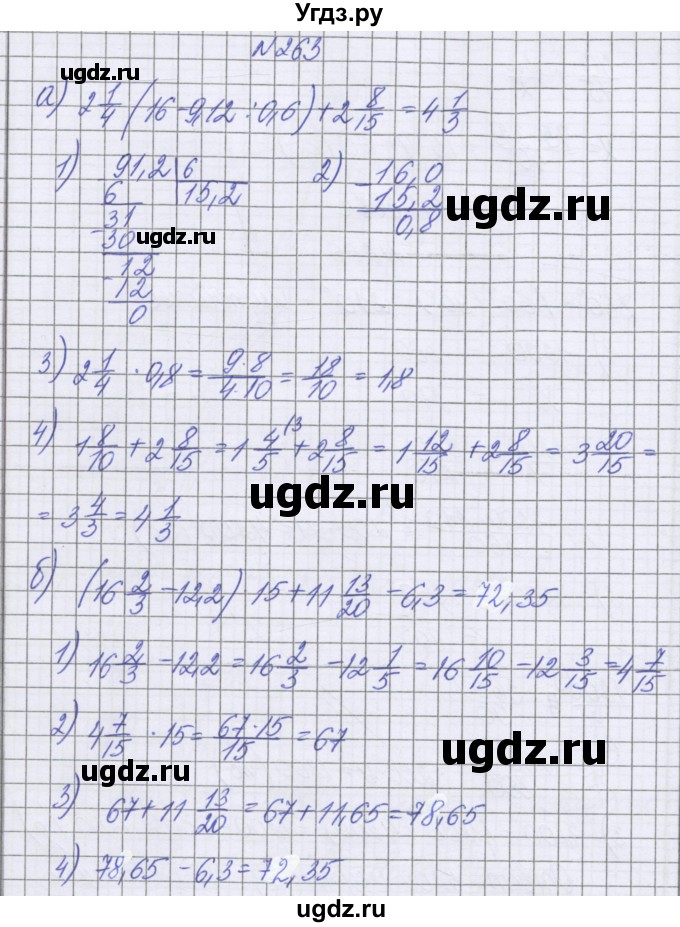 Угдз.ру
№263
ugdz.ru
а) 2 1/4 (16 - 9,12 : 0,6) + 2 8/15 = 4 1/3
1) 91,2 | 6
6 15,2
31
30
ugdz.ru
12
12
0
2) 16,0
15,2
ugdz.ru
0,8
3) 2 1/4 · 0,8 = 9·8/4·10 = 18/10 = 1,8
4) 1 8/10 + 2 8/15 = 1 4/5 \3 + 2 8/15 = 1 12/15 + 2 8/15 = 3 20/15 =
ugdz.ru
= 3 4/3 = 4 1/3
б) (16 2/3 - 12,2) 15 + 11 13/20 - 6,3 = 72,35
1) 16 2/3 - 12,2 = 16 2/3 - 12 1/5 = 16 10/15 - 12 3/15 = 4 7/15
2) 4 7/15 · 15 = 67·15/15 = 67
ugdz.ru
ugdz.ru
3) 67 + 11 13/20 = 67 + 11,65 = 78,65
4) 78,65 - 6,3 = 72,35
ugdz.ru